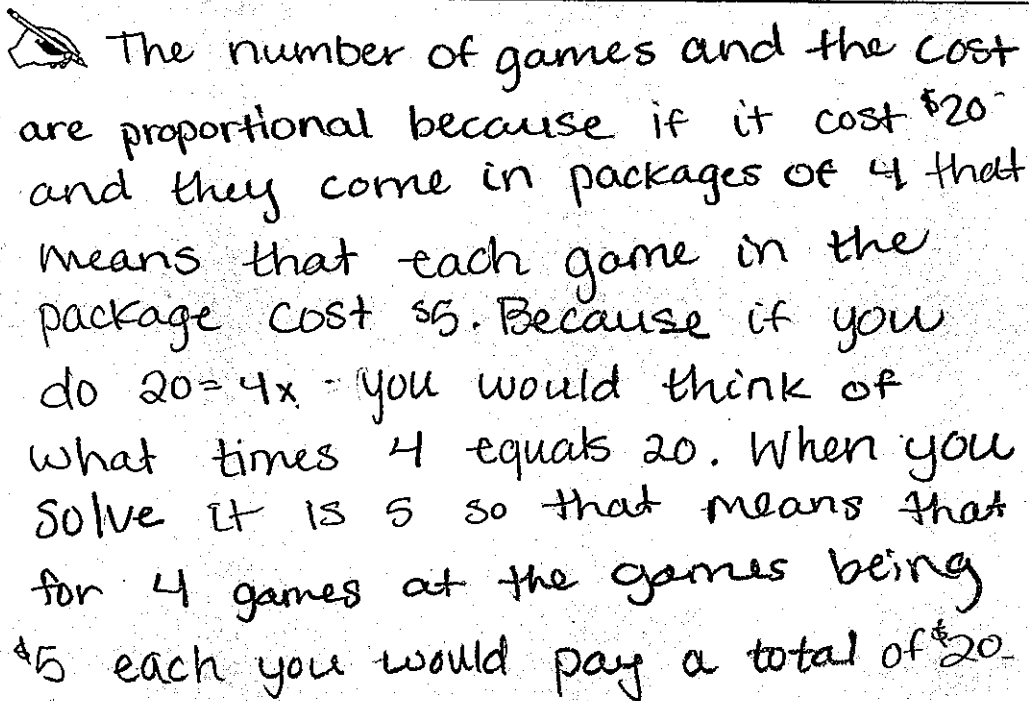 The number of games and the cost
are proportional because if it cost $20
and they come in packages of 4 that
means that each game in the
package cost $5. Because if you
do 20=4x - you would think of
what times 4 equals 20. When you
solve it is 5 so that means that
for 4 games at the games being
$5 each you would pay a total of $20